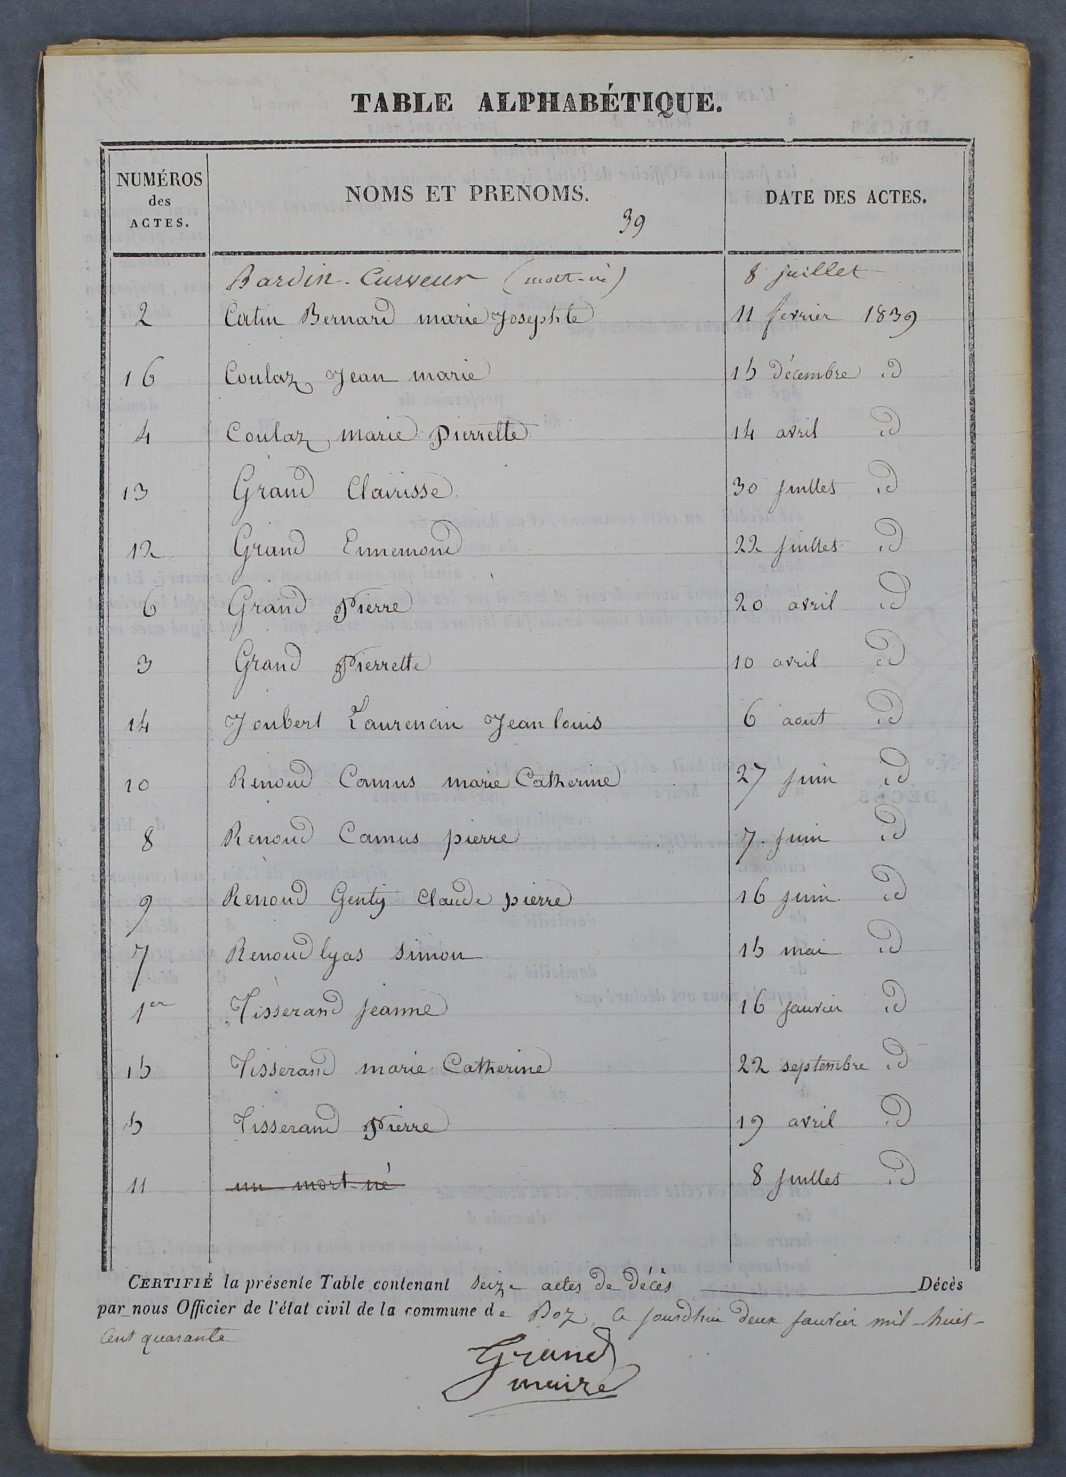 TABLE ALPHABÉTIQUE.
NUMÉROS des ACTES. NOMS ET PRENOMS. DATE DES ACTES.
39
Bardin-Curveur (mort-né) 8 juillet
2 Catin Bernard marie Josephte 11 fevrier 1839
16 Coulaz Jean marie 15 décembre id
4 Coulaz marie Pierrette 14 avril id
13 Grand Clairisse 30 juillet id
12 Grand Ennemond 22 juillet id
6 Grand Pierre 20 avril id
3 Grand Pierrette 10 avril id
14 Joubert Laurencin Jean louis 6 aout id
10 Renoud Camus marie Catherine 27 juin id
8 Renoud Camus pierre 7 juin id
9 Renoud Genty Claude pierre 16 juin id
7 Renoud lyas simon 15 mai id
1er Tisserand jeanne 16 janvier id
15 Tisserand marie Catherine 22 septembre id
5 Tisserand Pierre 19 avril id
11 un mort né 8 juillet id
CERTIFIÉ la présente Table contenant seize actes de décès Décès
par nous Officier de l'état civil de la commune de Boz, ce jourdhui deux janvier mil-huit-
cent quarante
Grand
maire